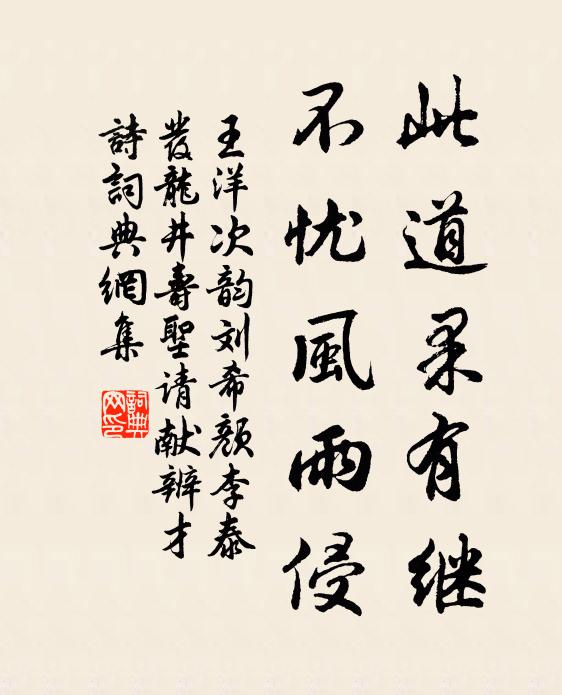 此道果有继
不忧風雨侵
王洋次韵刘希颜李泰
發龍井壽聖请献辨才
詩詞典網集
詞典網印